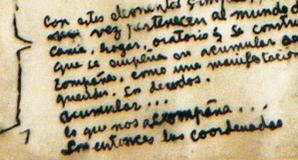 Con estos elementos simples
vez pertenecen al mundo d
cama, hogar, oratorio & se constru
que se amplia en acumular
compañas, como una manifestacion
queridos. En deudos.
acumular...
es que nos acompaña...
Son entonces las coordenadas